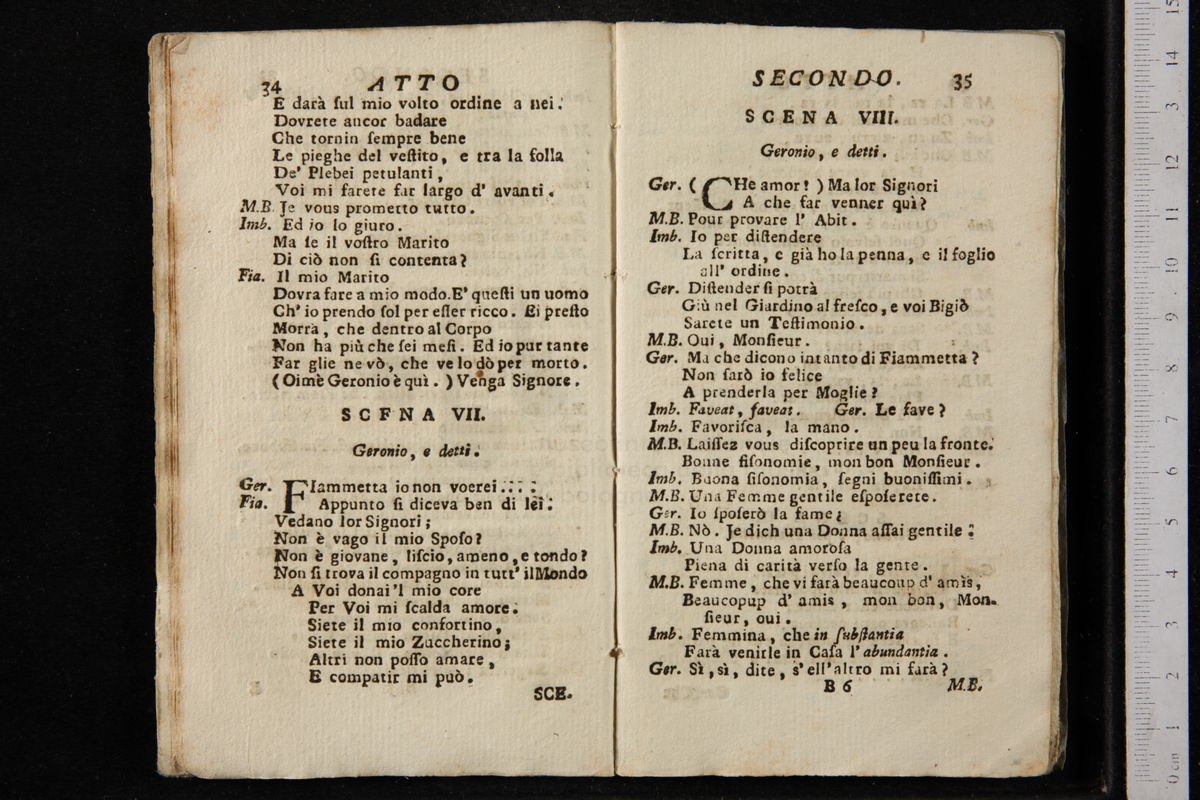 34 ATTO
E darà ſul mio volto ordine a nei.
Dovrete ancor badare
Che tornin ſempre bene
Le pieghe del veſtito, e tra la folla
De' Plebei petulanti,
Voi mi farete far largo d' avanti.
M.B. Je vous prometto tutto.
Imb. Ed io lo giuro.
Ma ſe il voſtro Marito
Di ciò non ſi contenta?
Fia. Il mio Marito
Dovra fare a mio modo. E' queſti un uomo
Ch' io prendo ſol per eſſer ricco. Ei preſto
Morrà, che dentro al Corpo
Non ha più che ſei meſi. Ed io pur tante
Far glie ne vò, che ve lo dò per morto.
(Oimè Geronio è quì.) Venga Signore.
SCENA VII.
Geronio, e detti.
Ger. FIammetta io non voerei....
Fia. Appunto ſi diceva ben di lei:
Vedano lor Signori;
Non è vago il mio Spoſo?
Non è giovane, liſcio, ameno, e tondo?
Non ſi trova il compagno in tutt' il Mondo
A Voi donai 'l mio core
Per Voi mi ſcalda amore.
Siete il mio confortino,
Siete il mio Zuccherino;
Altri non poſſo amare,
E compatir mi può.
SCE.
SECONDO. 35
SCENA VIII.
Geronio, e detti.
Ger. (CHe amor!) Ma lor Signori
A che far venner quì?
M.B. Pour provare l' Abit.
Imb. Io per diſtendere
La ſcritta, e già ho la penna, e il foglio
all' ordine.
Ger. Diſtender ſi potrà
Giù nel Giardino al freſco, e voi Bigiò
Sarete un Teſtimonio.
M.B. Oui, Monſieur.
Ger. Ma che dicono intanto di Fiammetta?
Non ſarò io felice
A prenderla per Moglie?
Imb. Faveat, faveat. Ger. Le fave?
Imb. Favoriſca, la mano.
M.B. Laiſſez vous diſcoprire un peu la fronte.
Bonne fiſonomie, mon bon Monſieur.
Imb. Buona fiſonomia, ſegni buoniſſimi.
M.B. Una Femme gentile eſpoſerete.
Ger. Io ſpoſerò la fame;
M.B. Nò. Je dich una Donna aſſai gentile:
Imb. Una Donna amoroſa
Piena di carità verſo la gente.
M.B. Femme, che vi farà beaucoup d' amis,
Beaucopup d' amis, mon bon, Mon-
ſieur, oui.
Imb. Femmina, che in ſubſtantia
Farà venirle in Caſa l' abundantia.
Ger. Sì, sì, dite, s' ell' altro mi farà?
B 6 M.B.